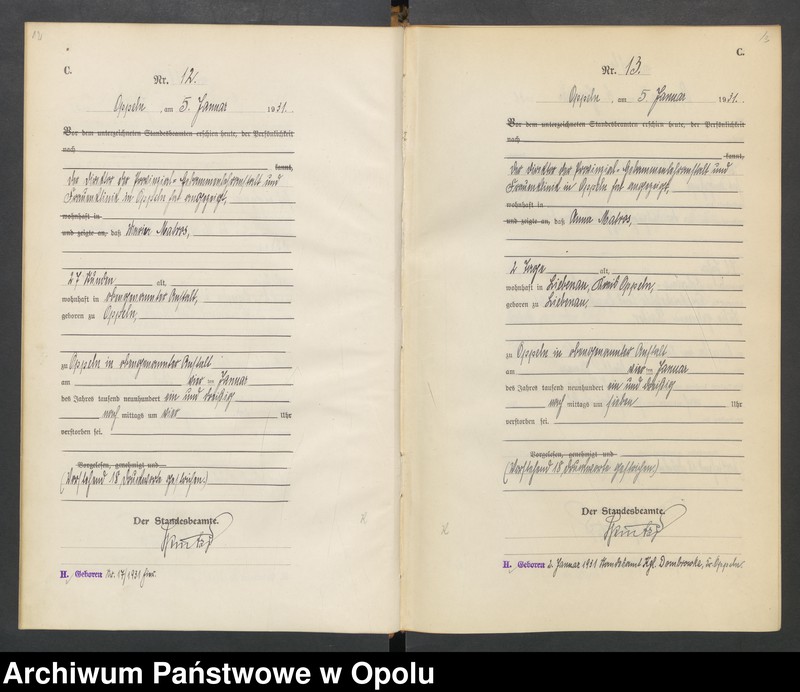 C.
Nr. 12.
Oppeln, am 5. Januar 1931.
Vor dem unterzeichneten Standesbeamten erschien heute, der Persönlichkeit
nach
kannt,
der Direktor der Provinzial-Hebammenlehranstalt und
Frauenklinik in Oppeln hat angezeigt,
wohnhaft in
und zeigte an, daß Maria Matros,
27 Stunden alt,
wohnhaft in obengenannter Anstalt,
geboren zu Oppeln,
zu Oppeln in obengenannter Anstalt
am vier ten Januar
des Jahres tausend neunhundert ein und dreißig
nach mittags um vier Uhr
verstorben sei.
Vorgelesen, genehmigt und
(Vorstehend 18 Druckworte gestrichen.)
Der Standesbeamte.
H. Geboren Nr. 17/1931 hier.
13
C.
Nr. 13.
Oppeln, am 5. Januar 1931.
Vor dem unterzeichneten Standesbeamten erschien heute, der Persönlichkeit
nach
kannt,
der Direktor der Provinzial-Hebammenlehranstalt und
Frauenklinik in Oppeln hat angezeigt,
wohnhaft in
und zeigte an, daß Anna Matros,
2 Tage alt,
wohnhaft in Liebenau, Kreis Oppeln,
geboren zu Liebenau,
zu Oppeln in obengenannter Anstalt
am vier ten Januar
des Jahres tausend neunhundert ein und dreißig
nach mittags um sieben Uhr
verstorben sei.
Vorgelesen, genehmigt und
(Vorstehend 18 Druckworte gestrichen.)
Der Standesbeamte.
H. Geboren 2. Januar 1931 Standesamt Kgl. Dombrowka, Kr. Oppeln.
Archiwum Państwowe w Opolu